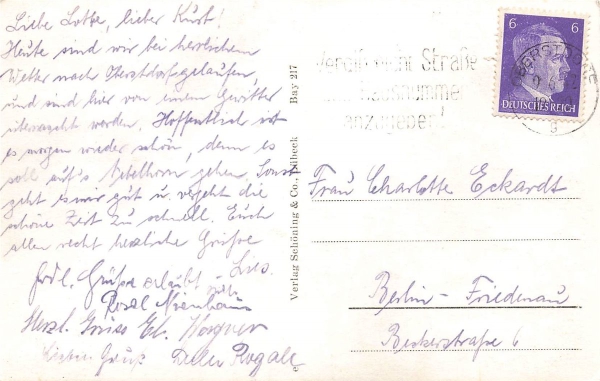 Liebe Lotte, lieber Kurt!
Heute sind wir bei herrlichem
Wetter nach Oberstdorf gelaufen,
und sind hier von einem Gewitter
überrascht worden. Hoffentlich ist
es morgen wieder schön, denn es
soll auf's Nebelhorn gehen. Sonst
geht es mir gut u. vergeht die
schöne Zeit zu schnell. Euch
allen recht herzliche Grüße
Lies.
Grüße erlaubt
Rosel
Herzl. Gruss El. Wagner
Lieben Gruß
Verlag Schöning & Co., Lübeck Bay 217
Vergiß nicht Straße-
Hausnummer
anzugeben!
OBERSTDORF
g
6 6
DEUTSCHES REICH
Frau Charlotte Eckardt
Berlin-Friedenau
Beckerstraße 6